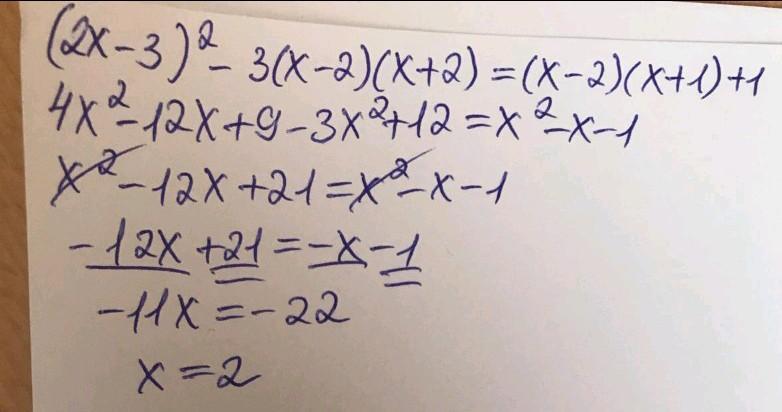 (2x-3)² - 3(x-2)(x+2) = (x-2)(x+1)+1
4x² - 12x + 9 - 3x² + 12 = x² - x - 1
x² - 12x + 21 = x² - x - 1
-12x + 21 = -x - 1
-11x = -22
x = 2